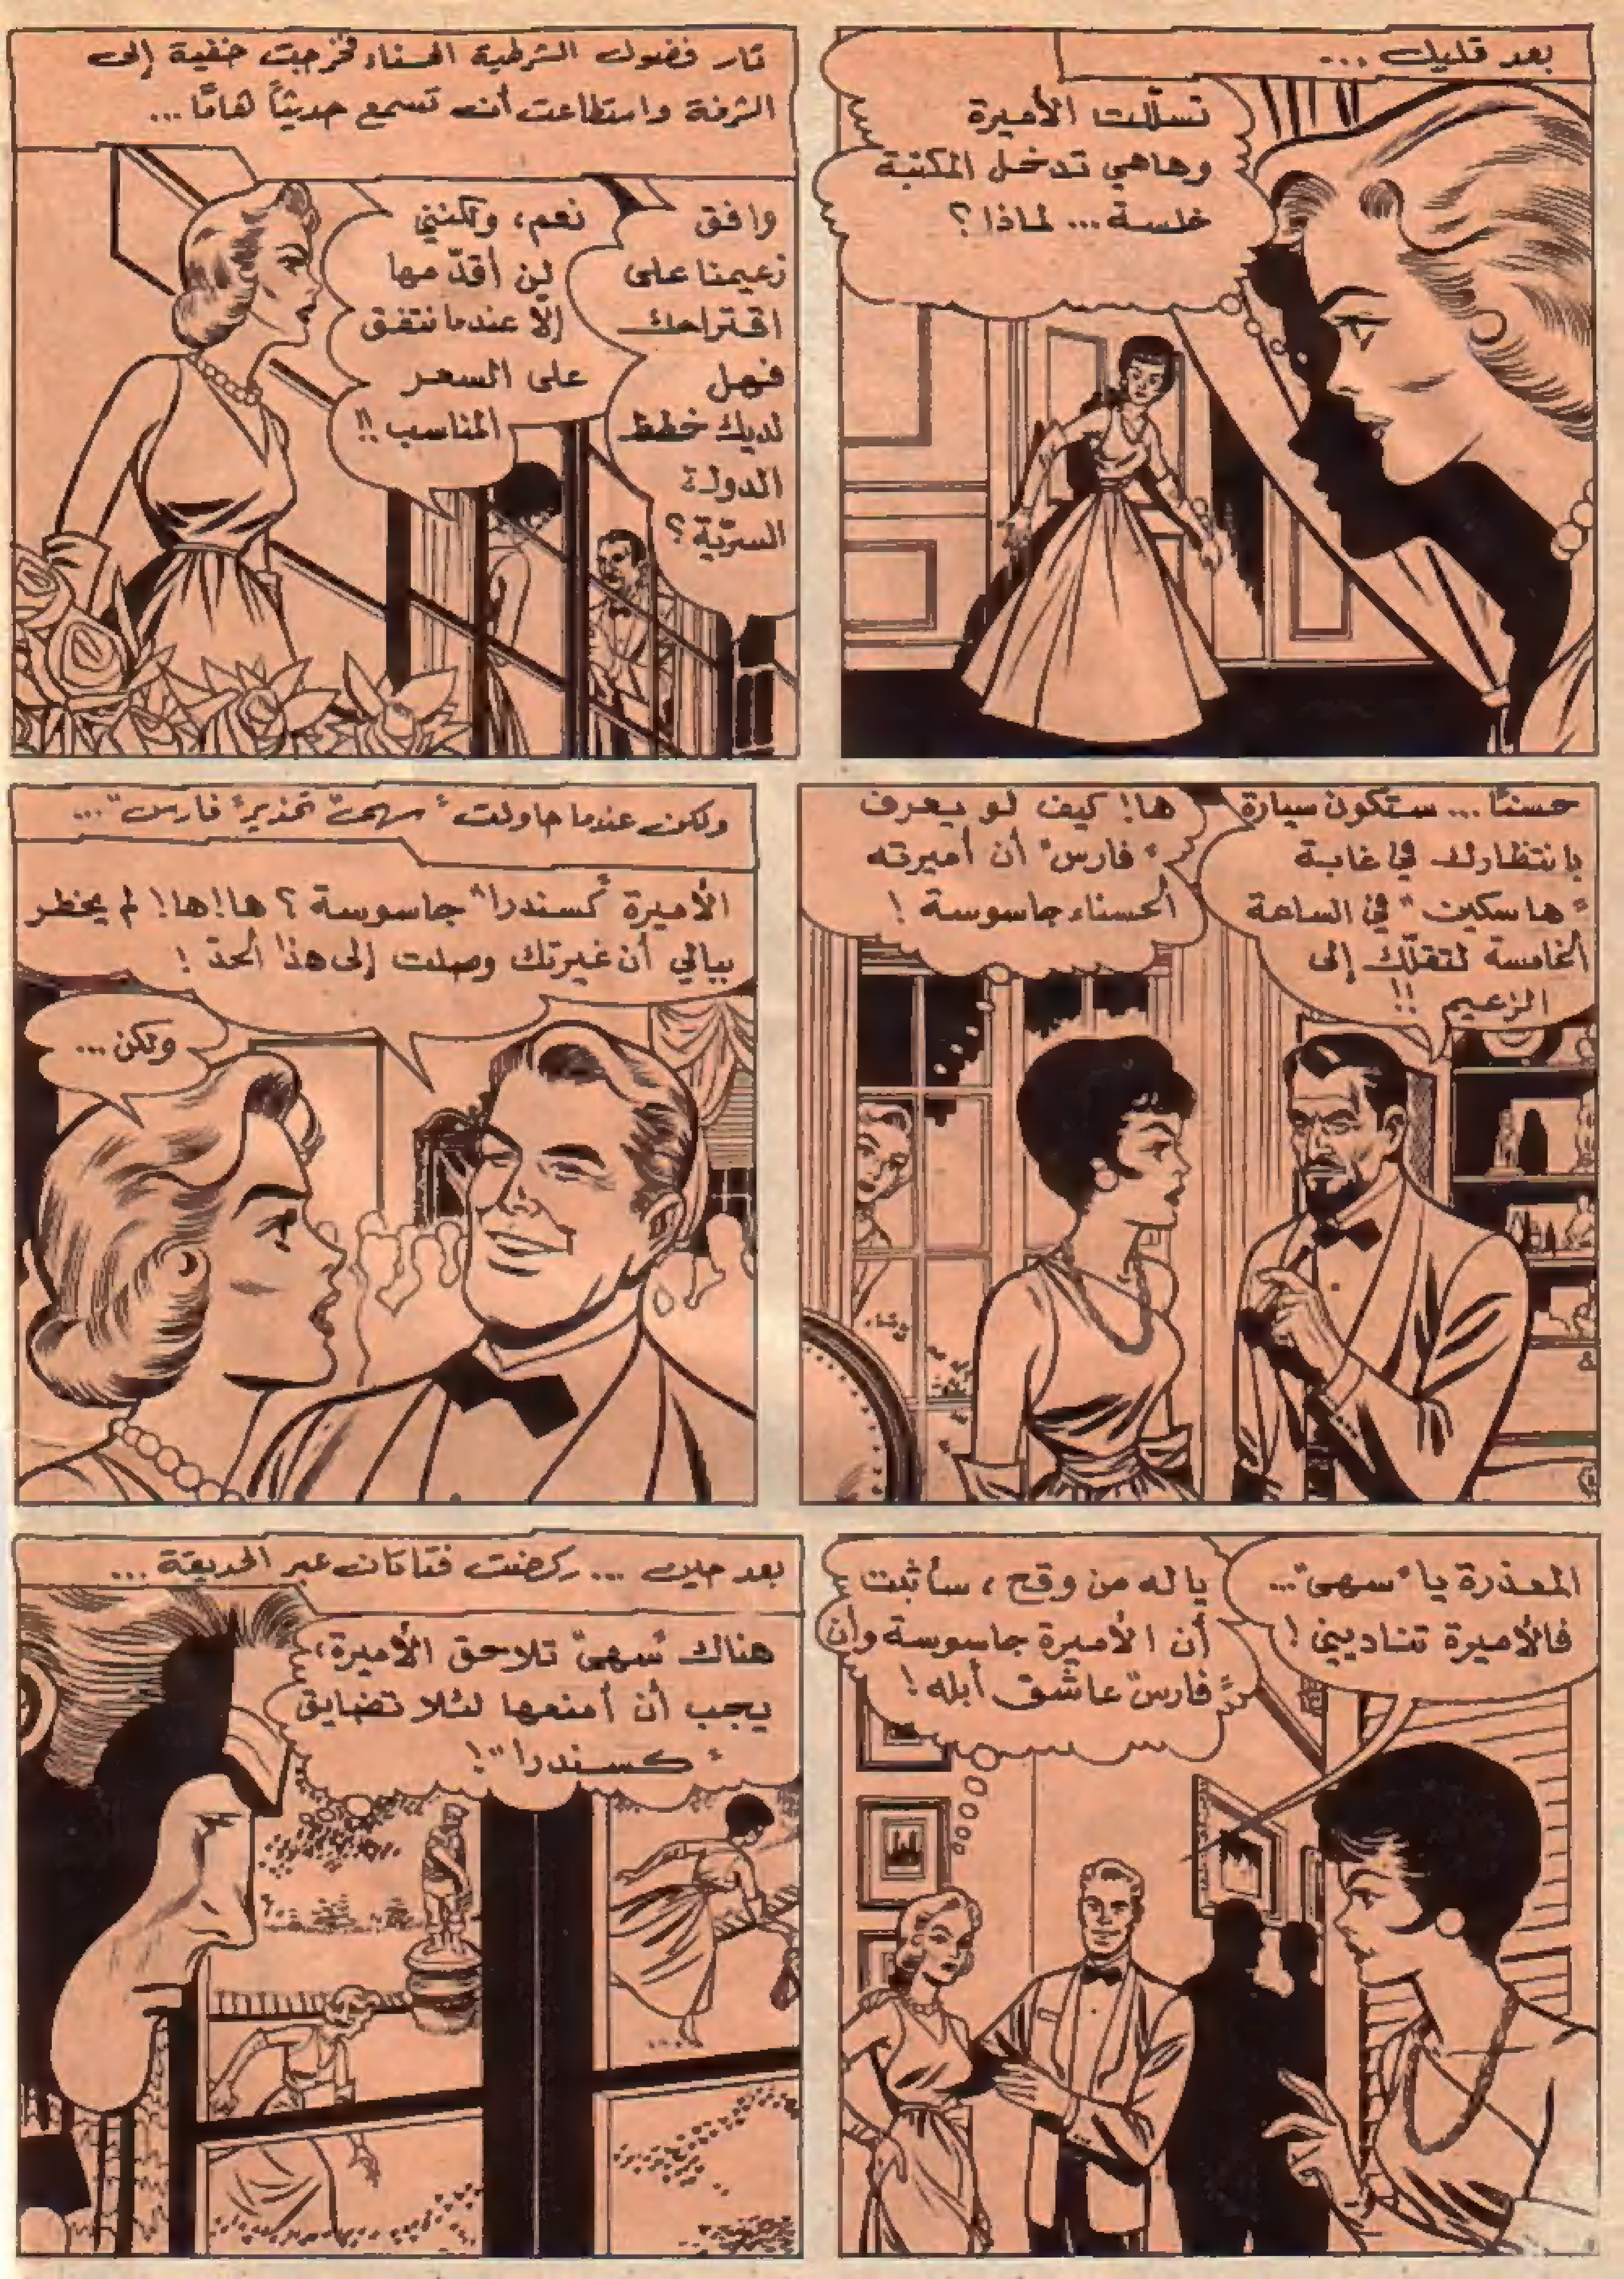 بعد قليل ...
تسلّلت الأميرة
وهاهي تدخل المكتبة
خلسة... لماذا؟
ثار فضول الشرطية الحسناء فخرجت خفية إلى
الشرفة واستطاعت أن تسمع حديثاً هامًا...
وافق
زعيمنا على
اقتراحك
فهل
لديك خطط
الدولة
السرّيّة؟
نعم، ولكنني
لن أقدّمها
إلّا عندما نتفق
على السعر
المناسب!!
حسنًا... ستكون سيارة
بانتظارك في غابة
"هاسكين" في الساعة
الخامسة لتقلّك إلى
الزعيم!!
ها! كيف لو يعرف
"فارس" أن أميرته
الحسناء جاسوسة!
ولكن عندما حاولت "سهى" تحذير "فارس"...
الأميرة "كسندرا" جاسوسة؟ ها!ها! لم يخطر
ببالي أن غيرتك وصلت إلى هذا الحدّ!
ولكن...
المعذرة يا "سهى"...
فالأميرة تناديني!
يا له من وقح، سأثبت
أن الأميرة جاسوسة وأن
"فارس" عاشق أبله!
بعد حين ... ركضت فتاتان عبر الحديقة...
هناك "سهى" تلاحق الأميرة،
يجب أن أمنعها لئلا تضايق
"كسندرا"!